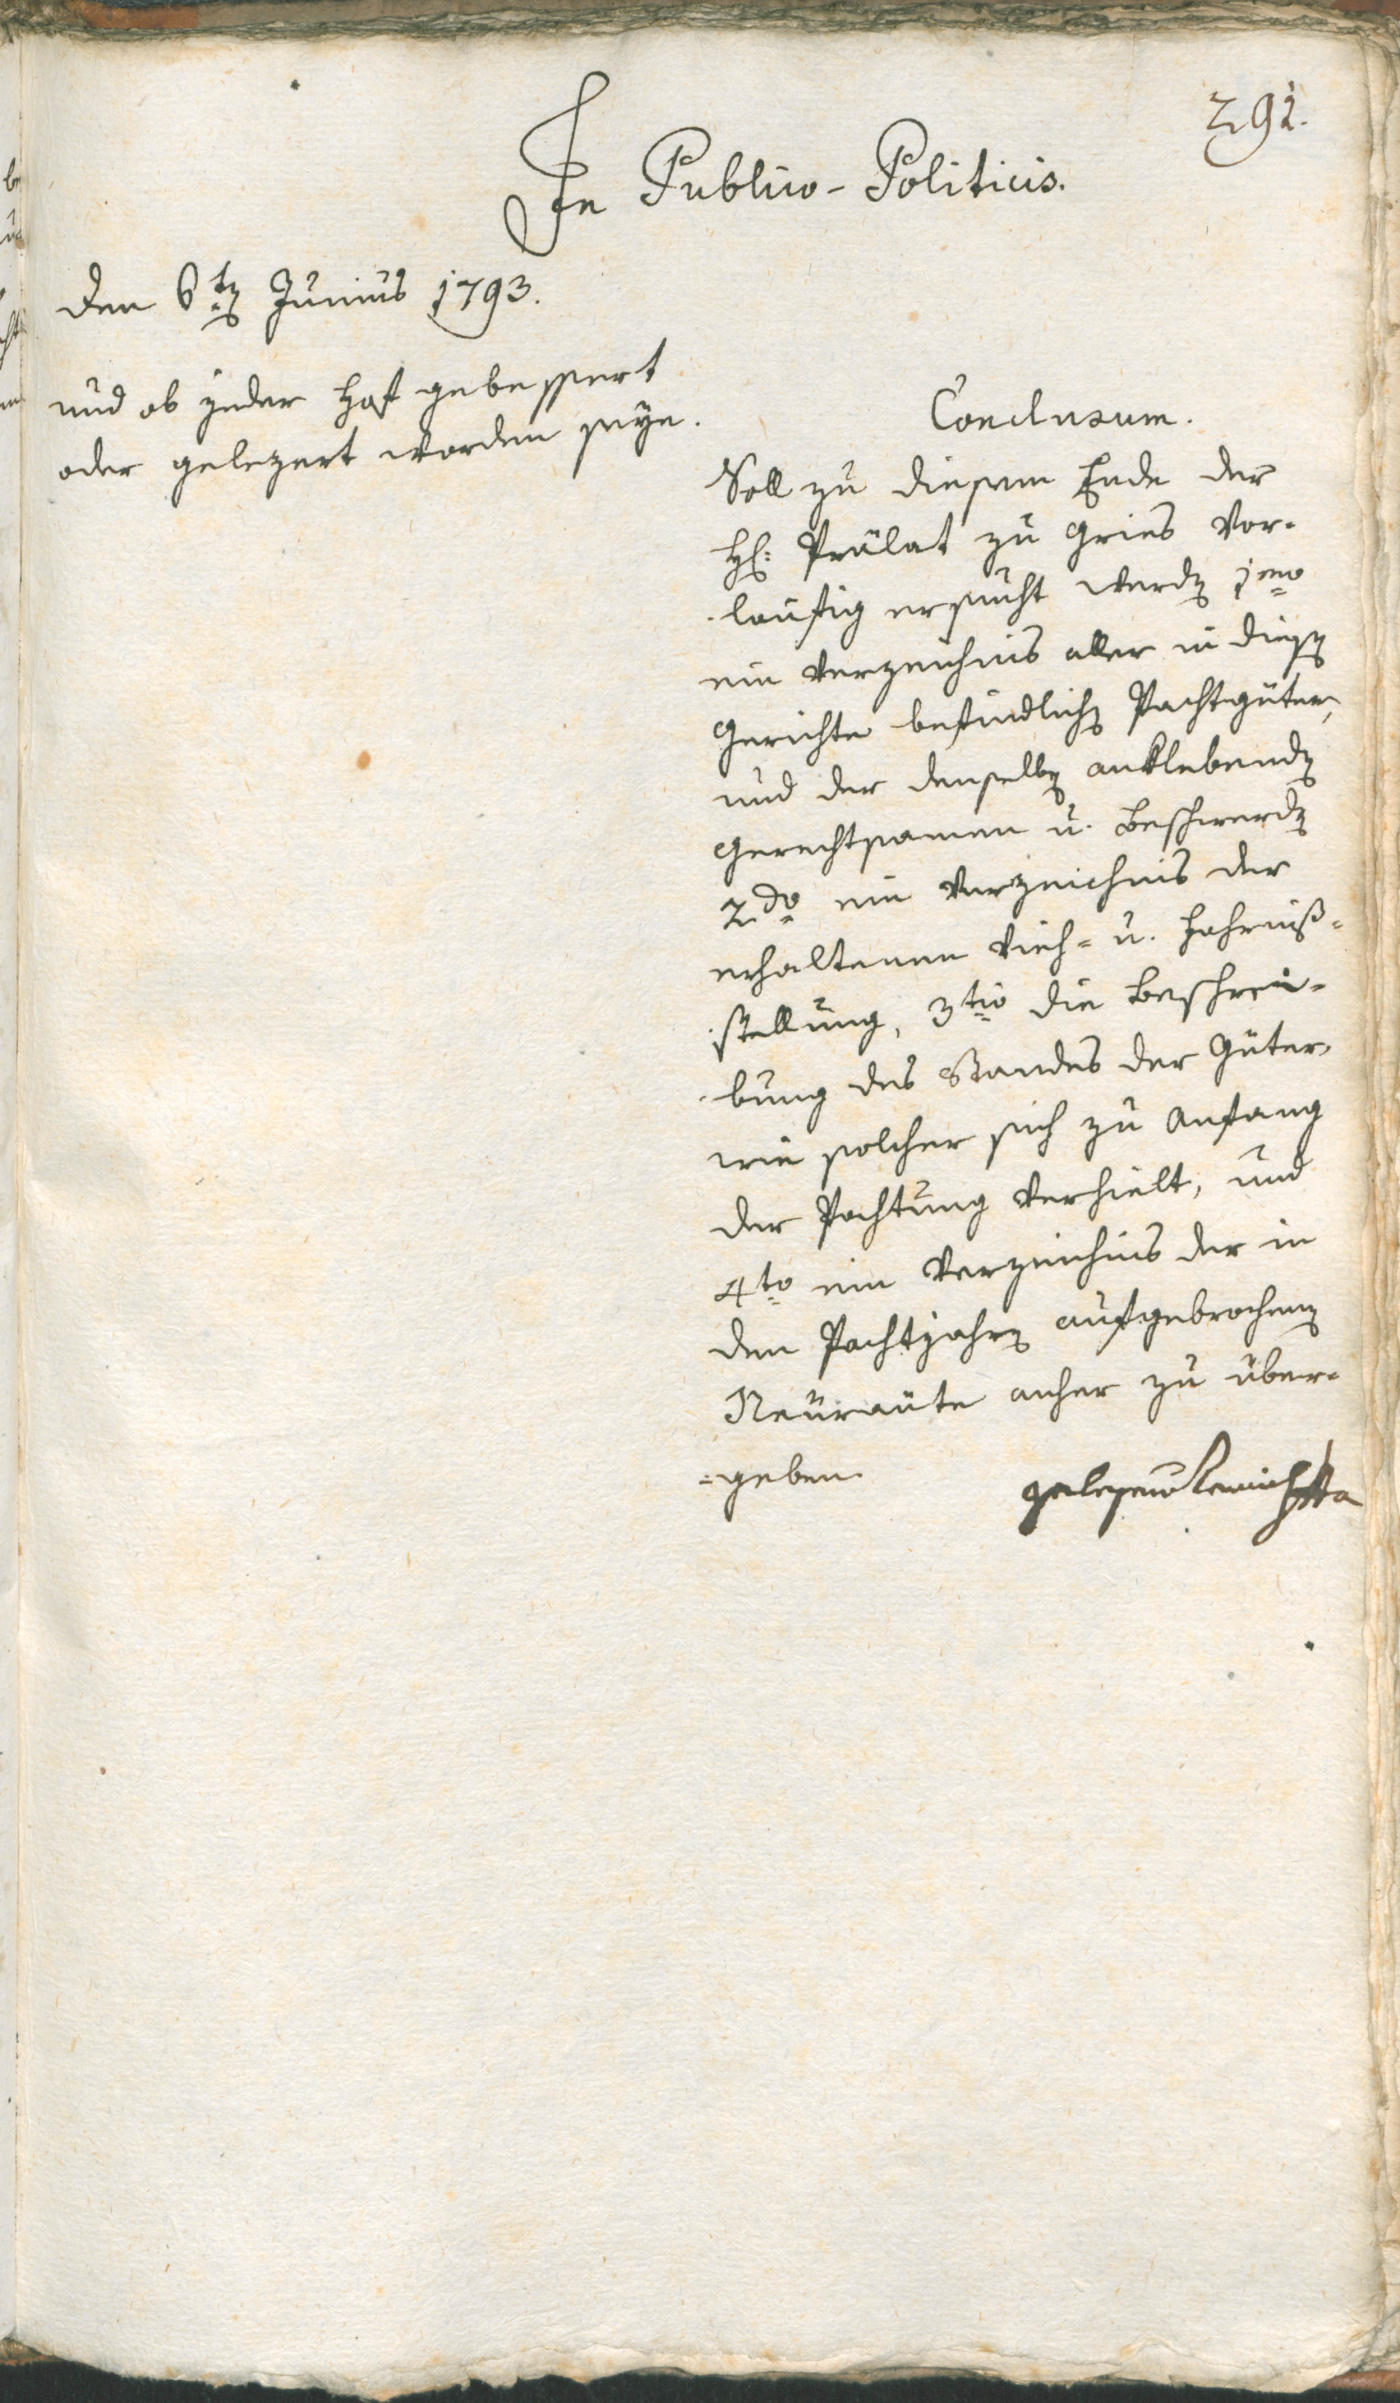 291.
In Publico-Politicis.
Den 6ten Junius 1793.
und ob jeder Hof gebessert
oder gelezert worden seye.
Conclusum.
Soll zu diesem Ende der
H: Prälat zu Gries vor-
läufig ersucht werden 1mo
ein Verzeichnis aller in diesen
Gerichte befindlichen Pachtgüter,
und der denselben anklebenden
Gerechtsamen u. Beschwerden
2do ein Verzeichnis der
erhaltenen Vieh- u. Fahrniß-
stellung, 3tio die Beschrei-
bung des Standes der Güter,
wie solcher sich zu Anfang
der Pachtung verhielt, und
4to ein Verzeichnis der in
den Pachtjahren aufgebrochenen
Neuraute anher zu über-
geben.
gelesen